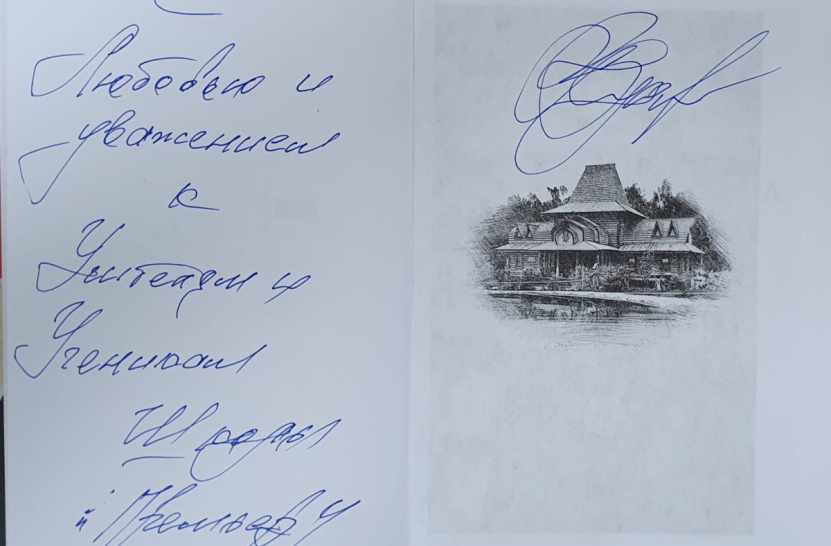 Любовью и
уважением
к
Учителям и
Ученикам
Школы
и